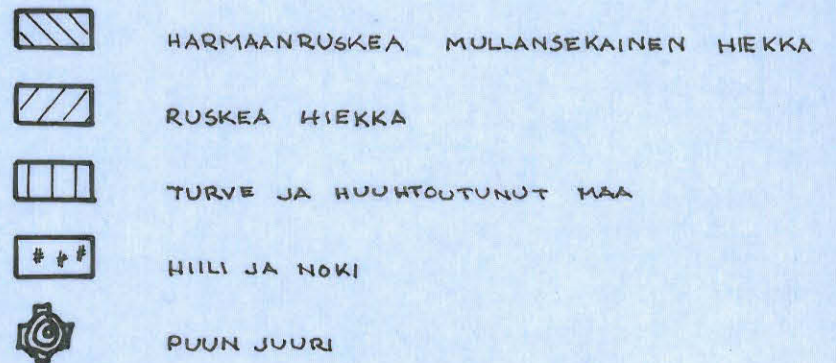 HARMAANRUSKEA MULLANSEKAINEN HIEKKA
RUSKEA HIEKKA
TURVE JA HUUHTOUTUNUT MAA
HIILI JA NOKI
PUUN JUURI